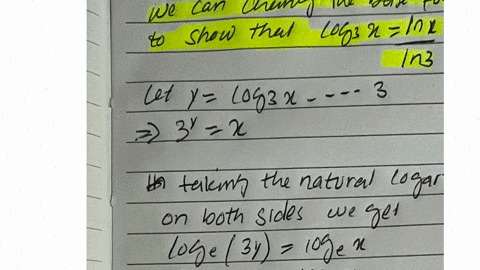 we can change the base
to show that log3 x = ln x
ln3
Let y = log3 x ----- 3
⇒ 3^y = x
taking the natural logar
on both sides we get
loge (3y) = loge x